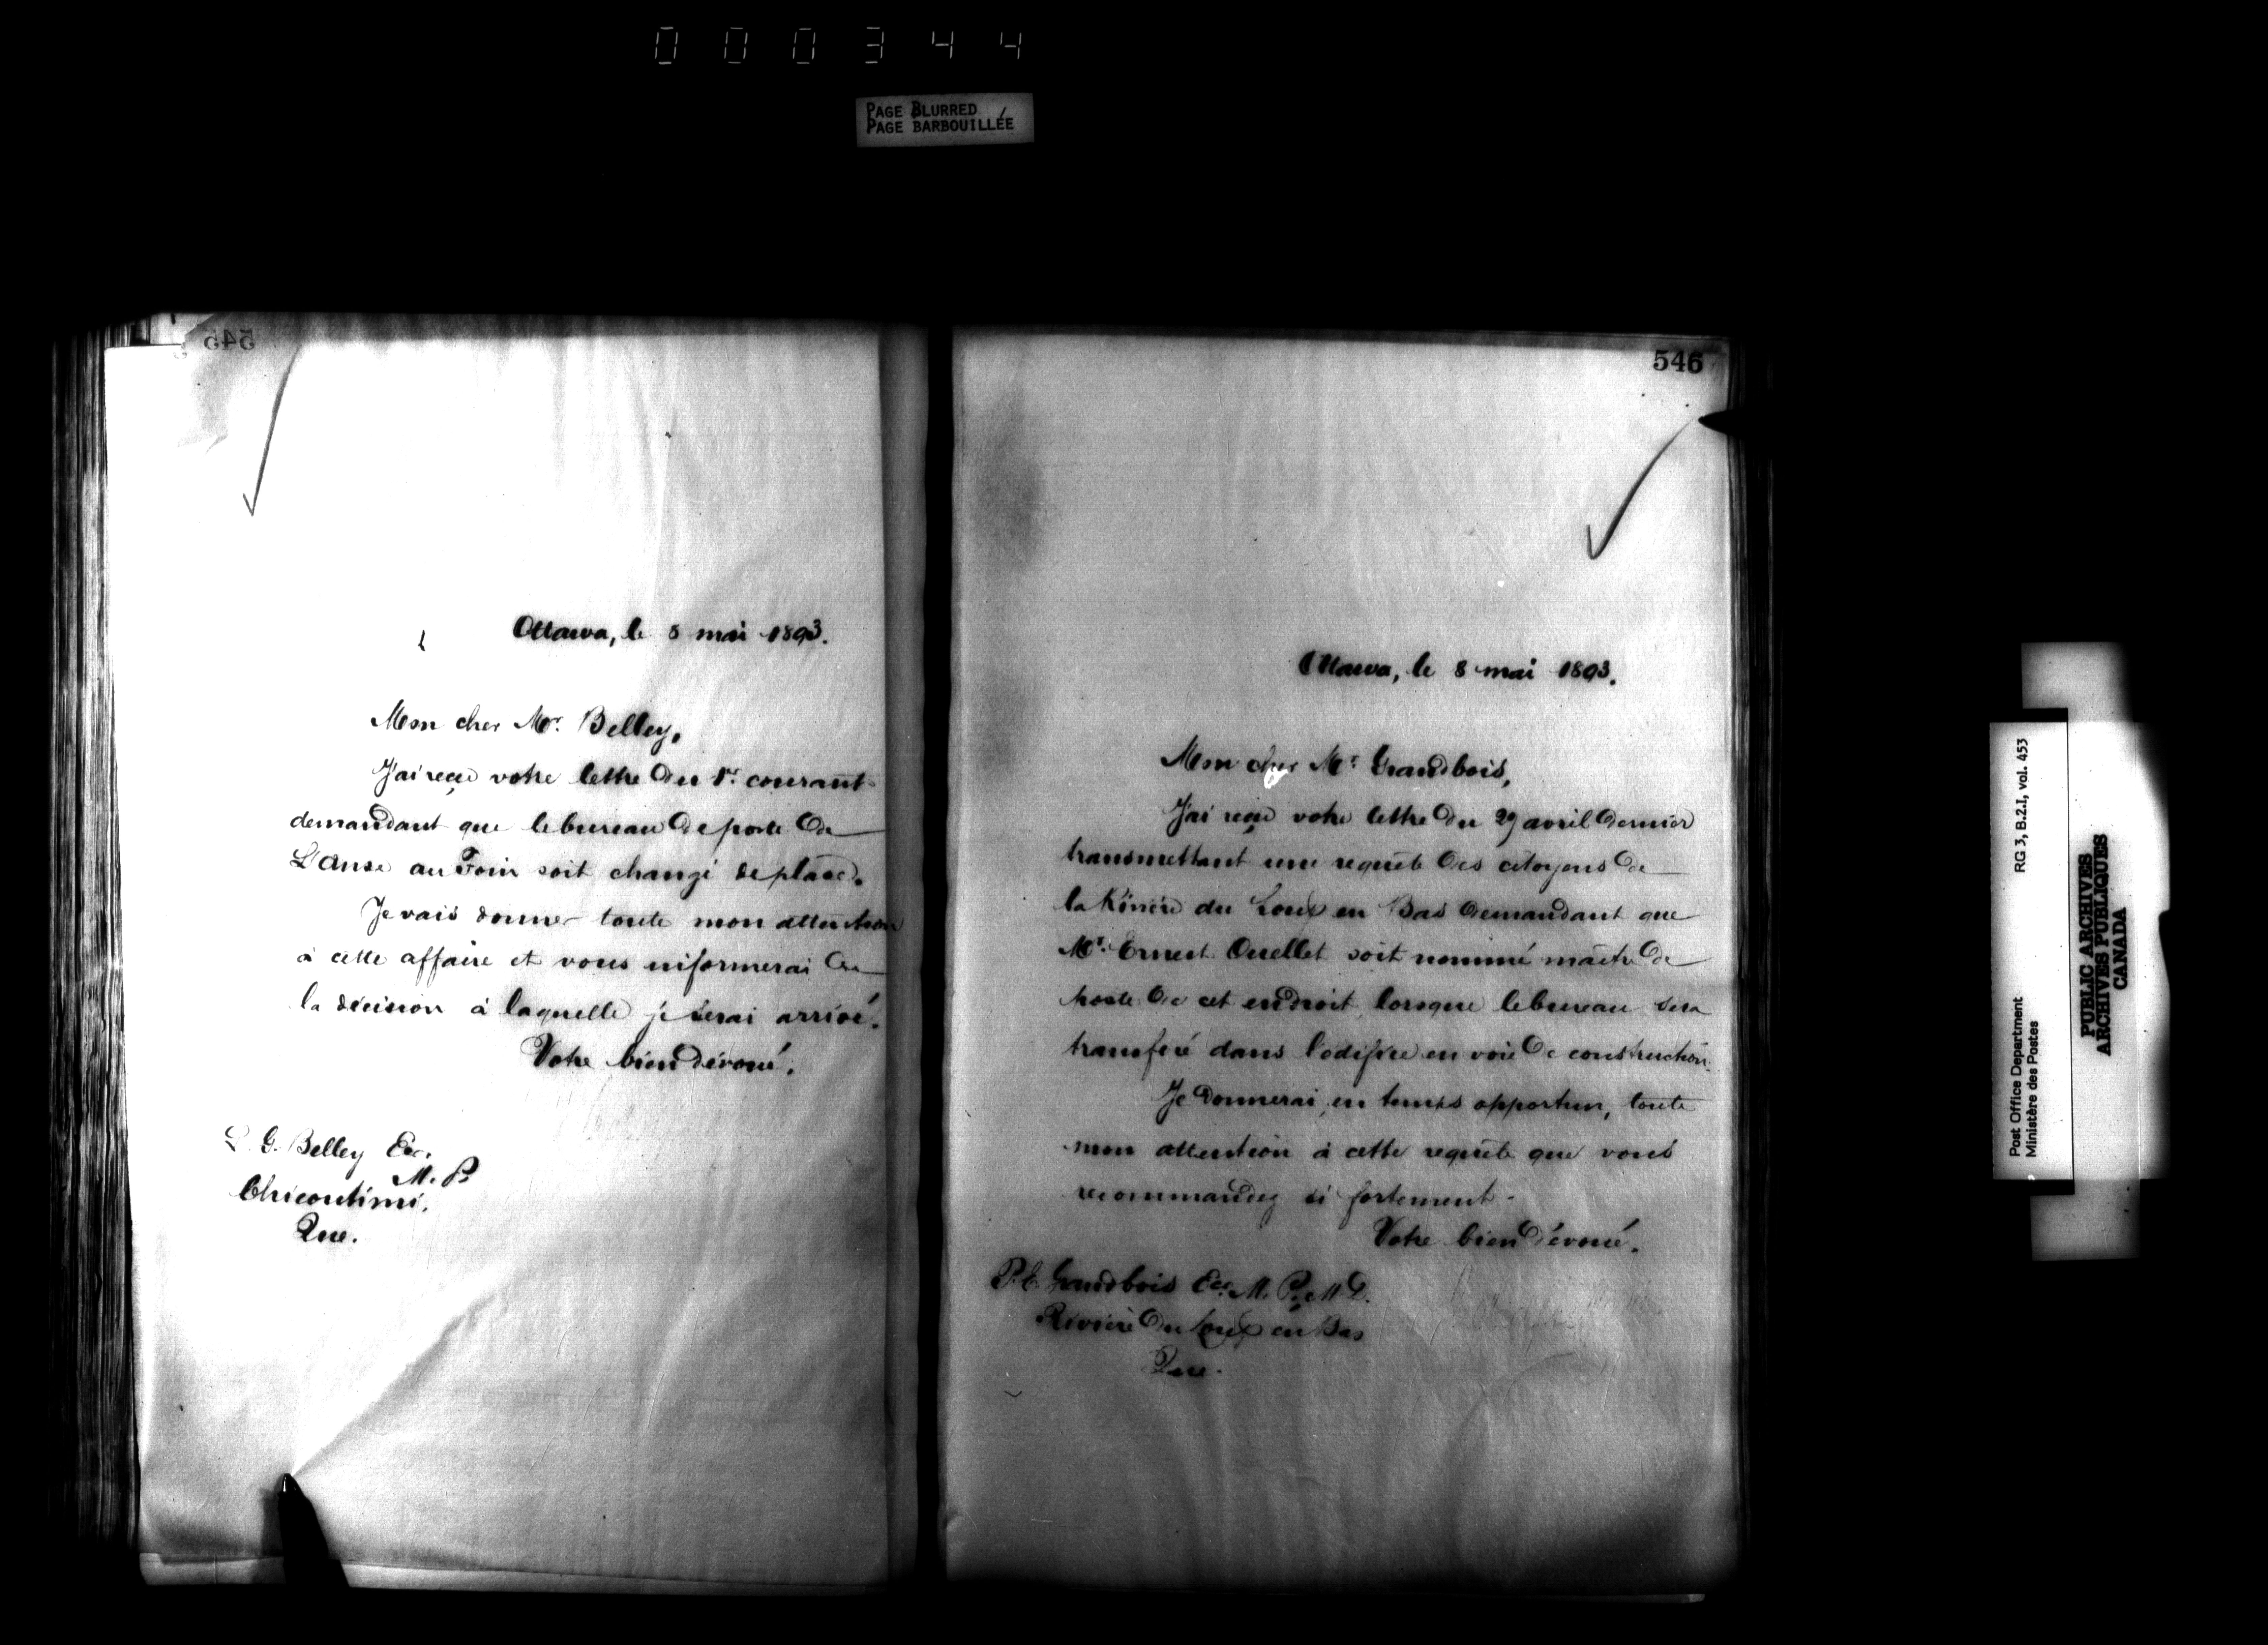 000344
PAGE BLURRED
PAGE BARBOUILLÉE
545
Ottawa, le 8 mai 1893.
Mon cher Mr. Belley,
J'ai reçu votre lettre du 1er courant
demandant que le bureau de poste de
L'Anse au Foin soit changé de place.
Je vais donner toute mon attention
à cette affaire et vous informerai de
la décision à laquelle je serai arrivé.
Votre bien dévoué.
L. G. Belley Ecr.
M. P.
Chicoutimi,
Que.
546
Ottawa, le 8 mai 1893.
Mon cher Mr. Grandbois,
J'ai reçu votre lettre du 29 avril dernier
transmettant une requête des citoyens de
la Rivière du Loup en Bas demandant que
Mr. Ernest Ouellet soit nommé maître de
poste de cet endroit, lorsque le bureau sera
transféré dans l'édifice en voie de construction.
Je donnerai, en temps opportun, toute
mon attention à cette requête que vous
recommandez si fortement.
Votre bien dévoué.
P. E. Grandbois Ecr. M. P., M. D.
Rivière du Loup en Bas
Que.
Post Office Department RG 3, B.2.I, vol. 453
Ministère des Postes
PUBLIC ARCHIVES
ARCHIVES PUBLIQUES
CANADA